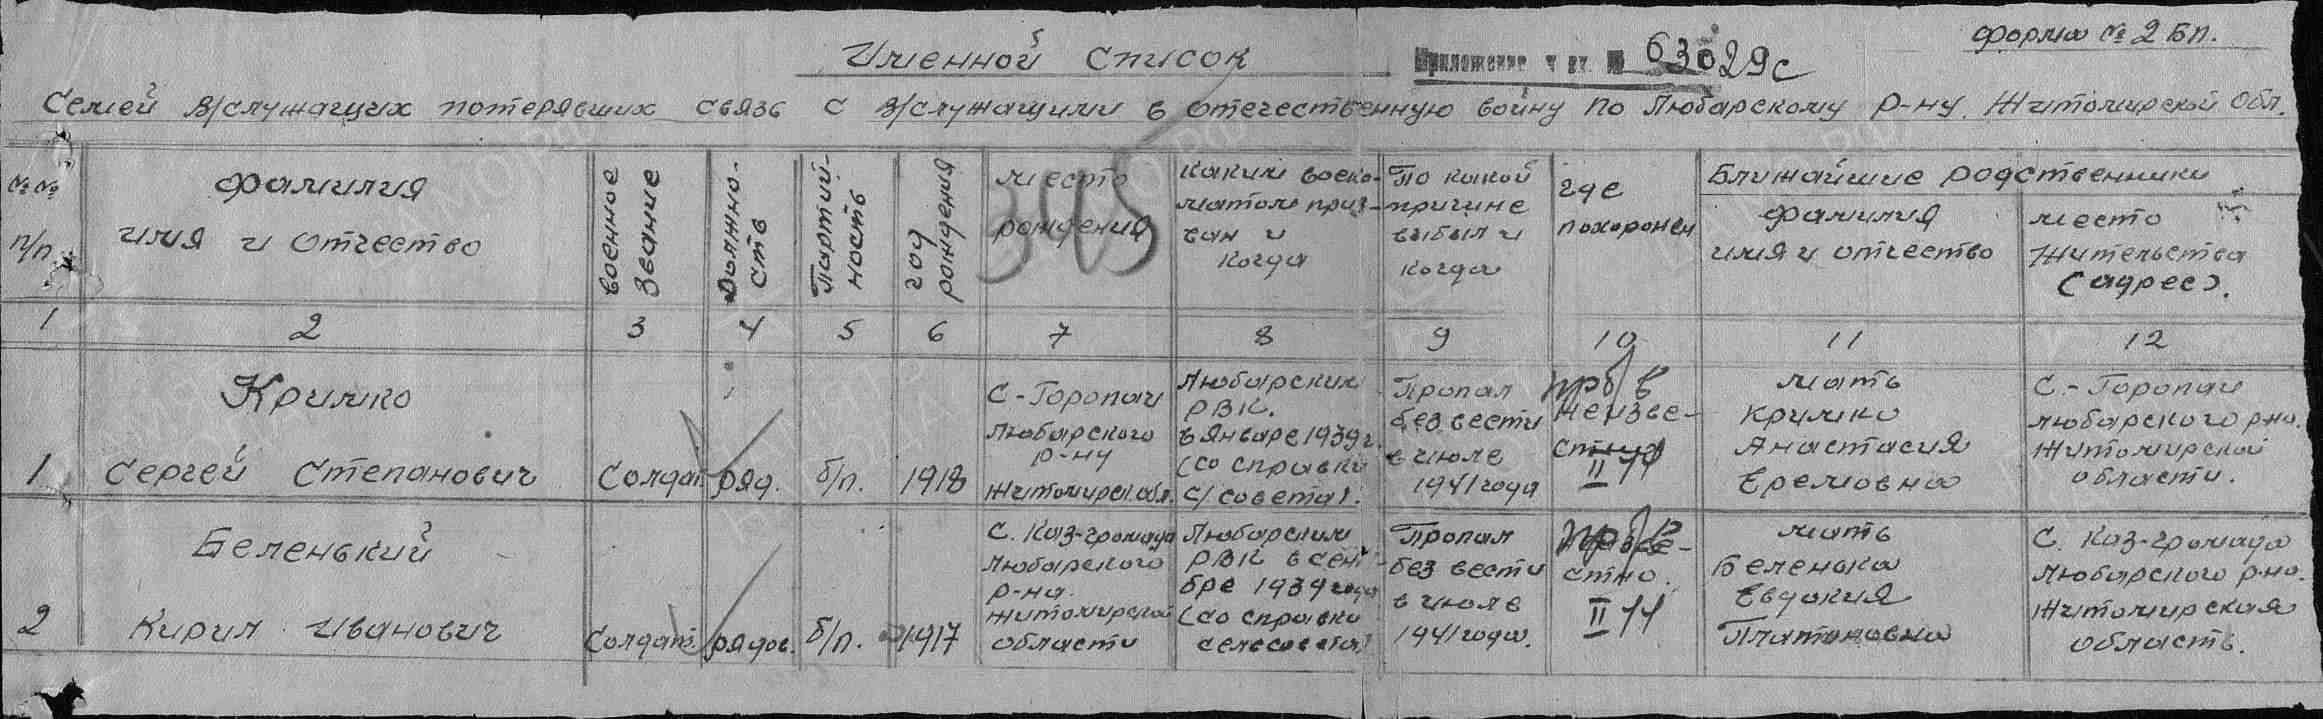 форма № 2 Бп.
Именной список
Приложение к вх. № 63029с
Семей в/служащих потерявших связь с в/служащими в отечественную войну по Любарскому р-ну. Житомирской обл.
345
№ №
п/п
фамилия
имя и отчество
военное
звание
должно-
сть
Партий-
ность
год
рождения
место
рождения
каким военко-
матом приз-
ван и
когда
По какой
причине
выбыл и
когда
где
похоронен
Ближайшие родственники
фамилия
имя и отчество
место
жительства
(адрес).
1 2 3 4 5 6 7 8 9 10 11 12
1
Кримко
Сергей Степанович
Солдат
ряд.
б/п.
1918
с-Горопаи
Любарского
р-ну
Житомирск. обл.
Любарским
РВК.
в январе 1939 г.
(со справки
с/совета).
Пропал
без вести
в июле
1941 года
прб/в
неизве-
стно
II 44
мать
Кримко
Анастасия
Еремовна
с.-Горопаи
Любарского р-на.
Житомирской
области.
2
Беленький
Кирил Иванович
Солдат.
рядов.
б/п.
1917
с. Каз-громада
Любарского
р-на.
Житомирской
области
Любарским
РВК в сент-
бре 1939 года
(со справки
сельсовета)
Пропал
без вести
в июле
1941 года.
прб/в
стно.
II 44
мать
Беленька
Евдокия
Платоновна
с. Каз-громада
Любарского р-на.
Житомирская
область.